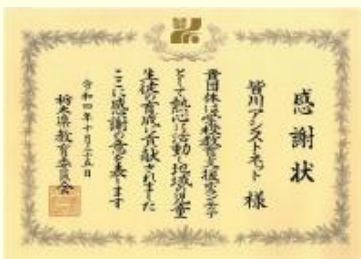 感謝状
皆川アシストネット 様
貴団体は学校教育支援ボランティア
として熱心に活動し地域の児童
生徒の育成に貢献されました
ここに感謝の意を表します
令和四年十月二十五日
栃木県教育委員会